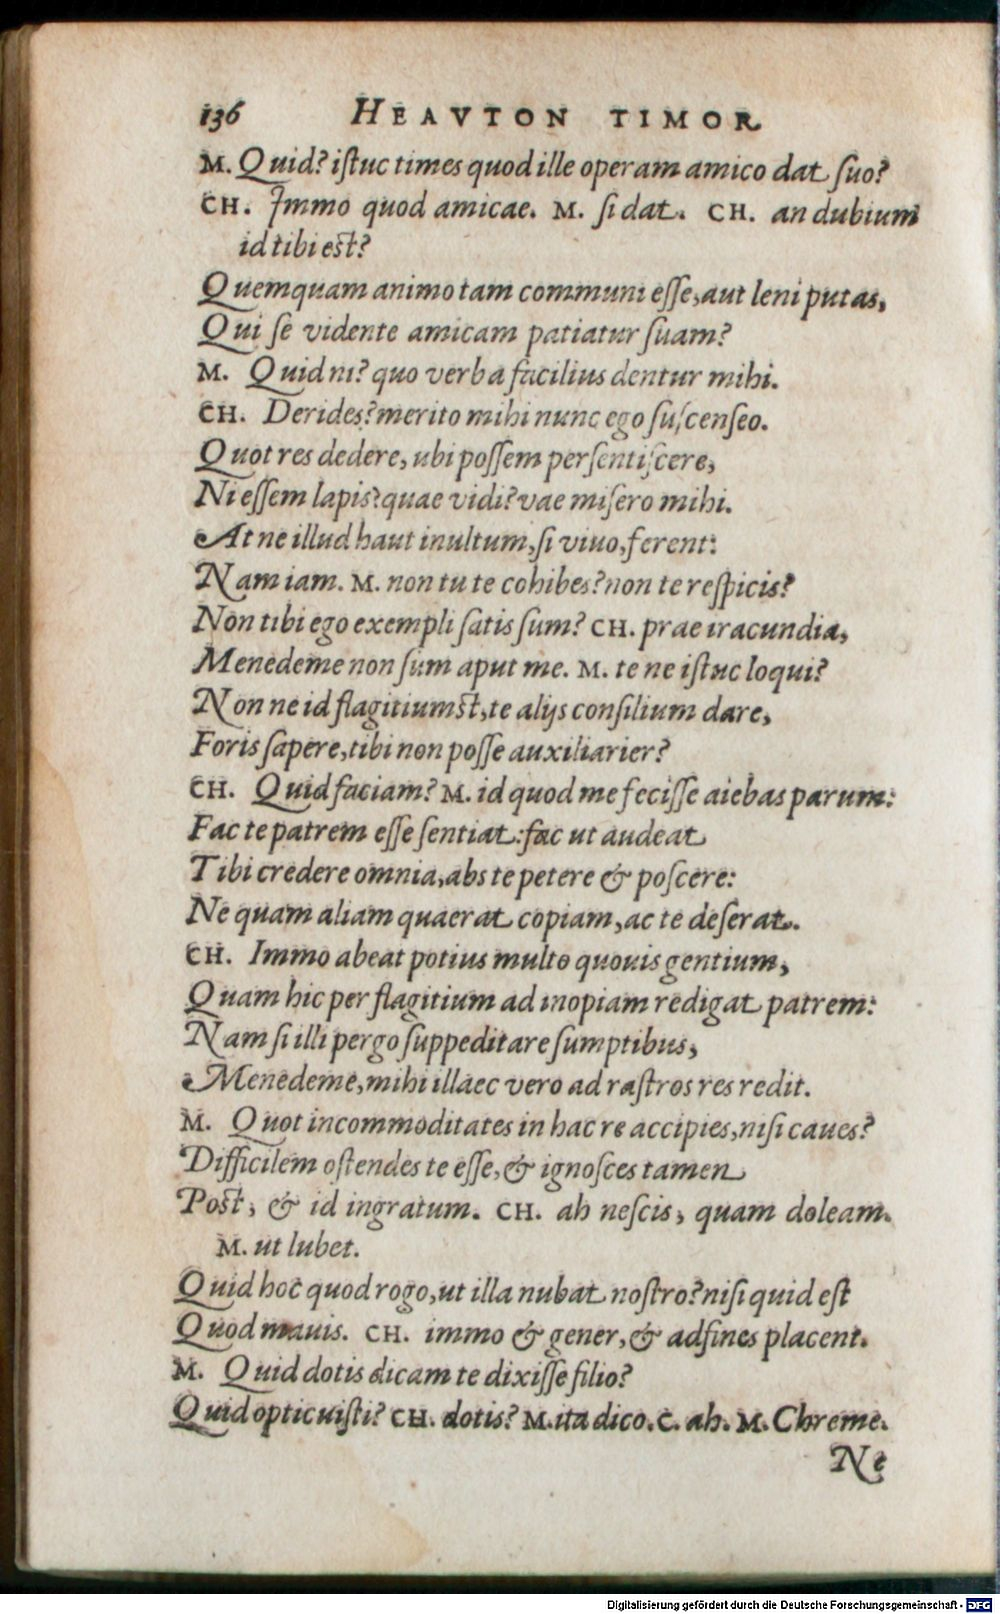 136 HEAVTON TIMOR
M. Quid? istuc times quod ille operam amico dat suo?
CH. Immo quod amicae. M. si dat. CH. an dubium
id tibi est?
Quemquam animo tam communi esse, aut leni putas,
Qui se vidente amicam patiatur suam?
M. Quid ni? quo verba facilius dentur mihi.
CH. Derides? merito mihi nunc ego suscenseo.
Quot res dedere, ubi possem persentiscere,
Ni essem lapis? quae vidi? vae misero mihi.
At ne illud haut inultum, si viuo, ferent:
Nam iam. M. non tu te cohibes? non te respicis?
Non tibi ego exempli satis sum? CH. prae iracundia,
Menedeme non sum aput me. M. te ne istuc loqui?
Non ne id flagitiumst, te alijs consilium dare,
Foris sapere, tibi non posse auxiliarier?
CH. Quid faciam? M. id quod me fecisse aiebas parum:
Fac te patrem esse sentiat: fac ut audeat
Tibi credere omnia, abs te petere & poscere:
Ne quam aliam quaerat copiam, ac te deserat.
CH. Immo abeat potius multo quouis gentium,
Quam hic per flagitium ad inopiam redigat patrem:
Nam si illi pergo suppeditare sumptibus,
Menedeme, mihi illaec vero ad rastros res redit.
M. Quot incommoditates in hac re accipies, nisi caues?
Difficilem ostendes te esse, & ignosces tamen
Post, & id ingratum. CH. ah nescis, quam doleam.
M. ut lubet.
Quid hoc quod rogo, ut illa nubat nostro? nisi quid est
Quod mauis. CH. immo & gener, & adfines placent.
M. Quid dotis dicam te dixisse filio?
Quid opticuisti? CH. dotis? M. ita dico. C. ah. M. Chreme.
Ne
Digitalisierung gefördert durch die Deutsche Forschungsgemeinschaft - DFG